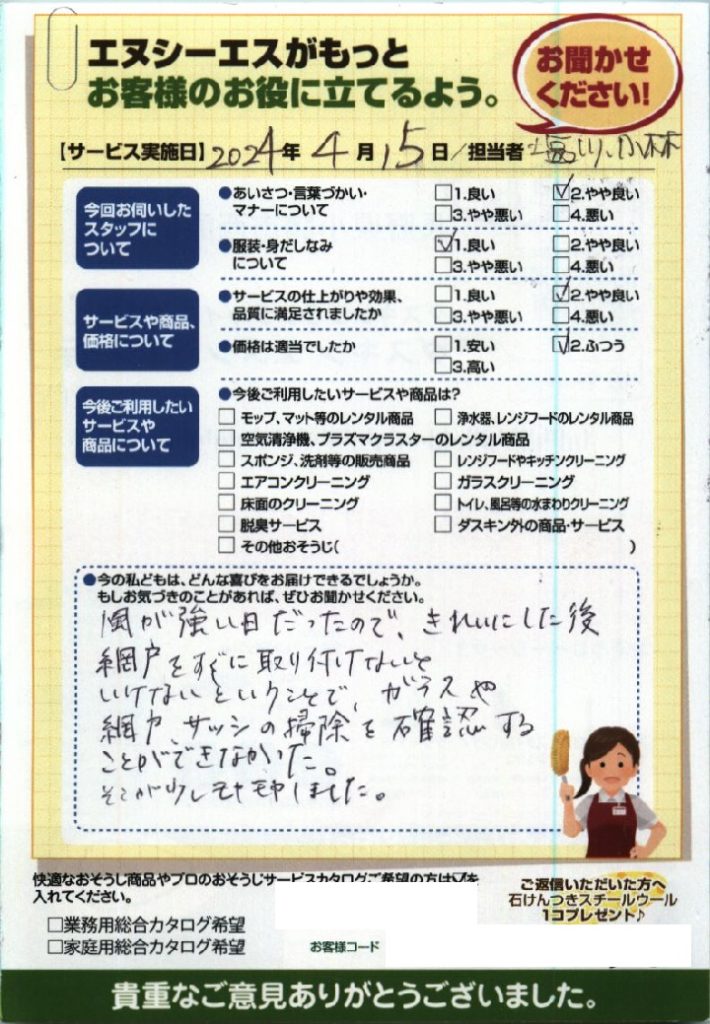 エヌシーエスがもっと
お客様のお役に立てるよう。
お聞かせ
ください!
【サービス実施日】2024年4月15日/担当者 塩川、小林
今回お伺いした
スタッフに
ついて
●あいさつ・言葉づかい・
マナーについて
□1.良い ☑2.やや良い
□3.やや悪い □4.悪い
●服装・身だしなみ
について
☑1.良い □2.やや良い
□3.やや悪い □4.悪い
サービスや商品、
価格について
●サービスの仕上がりや効果、
品質に満足されましたか
□1.良い ☑2.やや良い
□3.やや悪い □4.悪い
●価格は適当でしたか
□1.安い ☑2.ふつう
□3.高い
今後ご利用したい
サービスや
商品について
●今後ご利用したいサービスや商品は?
□ モップ、マット等のレンタル商品 □ 浄水器、レンジフードのレンタル商品
□ 空気清浄機、プラズマクラスターのレンタル商品
□ スポンジ、洗剤等の販売商品 □ レンジフードやキッチンクリーニング
□ エアコンクリーニング □ ガラスクリーニング
□ 床面のクリーニング □ トイレ、風呂等の水まわりクリーニング
□ 脱臭サービス □ ダスキン外の商品・サービス
□ その他おそうじ( )
●今の私どもは、どんな喜びをお届けできるでしょうか。
もしお気づきのことがあれば、ぜひお聞かせください。
風が強い日だったので、きれいにした後
網戸をすぐに取り付けないと
いけないということで、ガラスや
網戸、サッシの掃除を確認する
ことができなかった。
そこが少しモヤモヤしました。
快適なおそうじ商品やプロのおそうじサービスカタログご希望の方は☑を
入れてください。
□業務用総合カタログ希望
□家庭用総合カタログ希望
お客様コード
ご返信いただいた方へ
石けんつきスチールウール
1コプレゼント♪
貴重なご意見ありがとうございました。